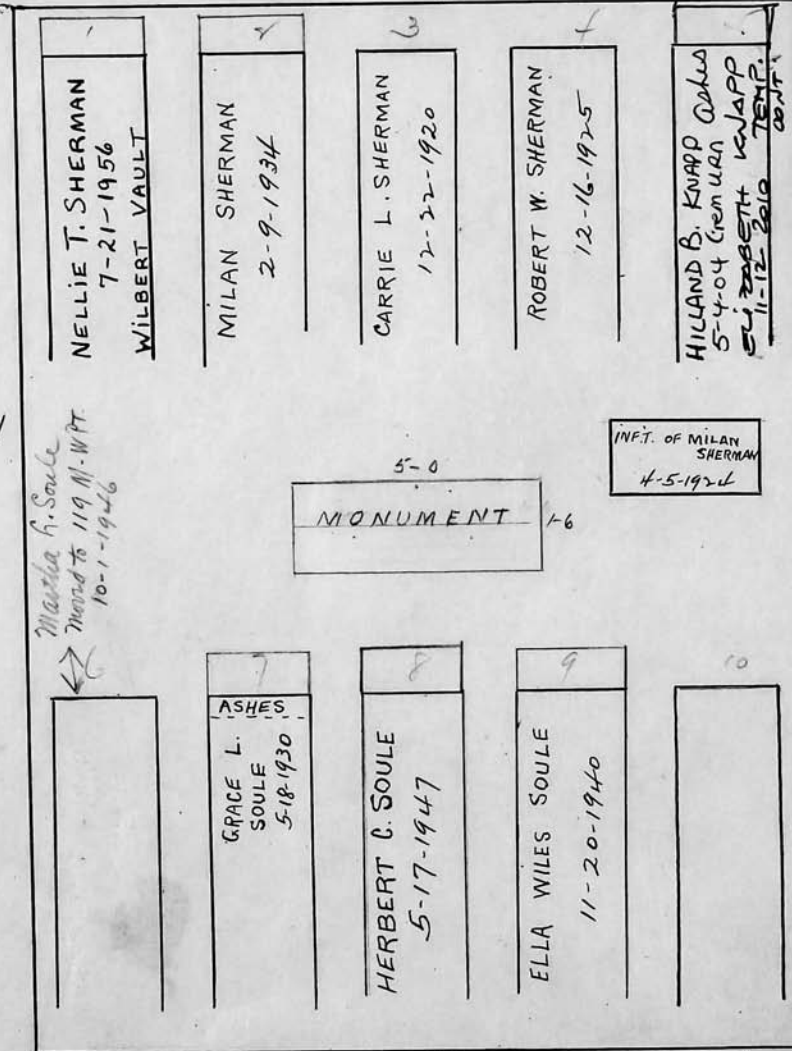 1
NELLIE T. SHERMAN
7-21-1956
WILBERT VAULT
2
MILAN SHERMAN
2-9-1934
3
CARRIE L. SHERMAN
12-22-1920
4
ROBERT W. SHERMAN
12-16-1925
HILLAND B. KNAPP Ashes
5-4-04 Crem URN
ELIZABETH KNAPP
11-12 2010 TEMP.
CONT.
Martha G. Soule
Moved to 119 M-WPT.
10-1-1946
5-0
MONUMENT
1-6
INF.T. OF MILAN
SHERMAN
4-5-1924
7
ASHES
GRACE L.
SOULE
5-18-1930
8
HERBERT C. SOULE
5-17-1947
9
ELLA WILES SOULE
11-20-1940
10